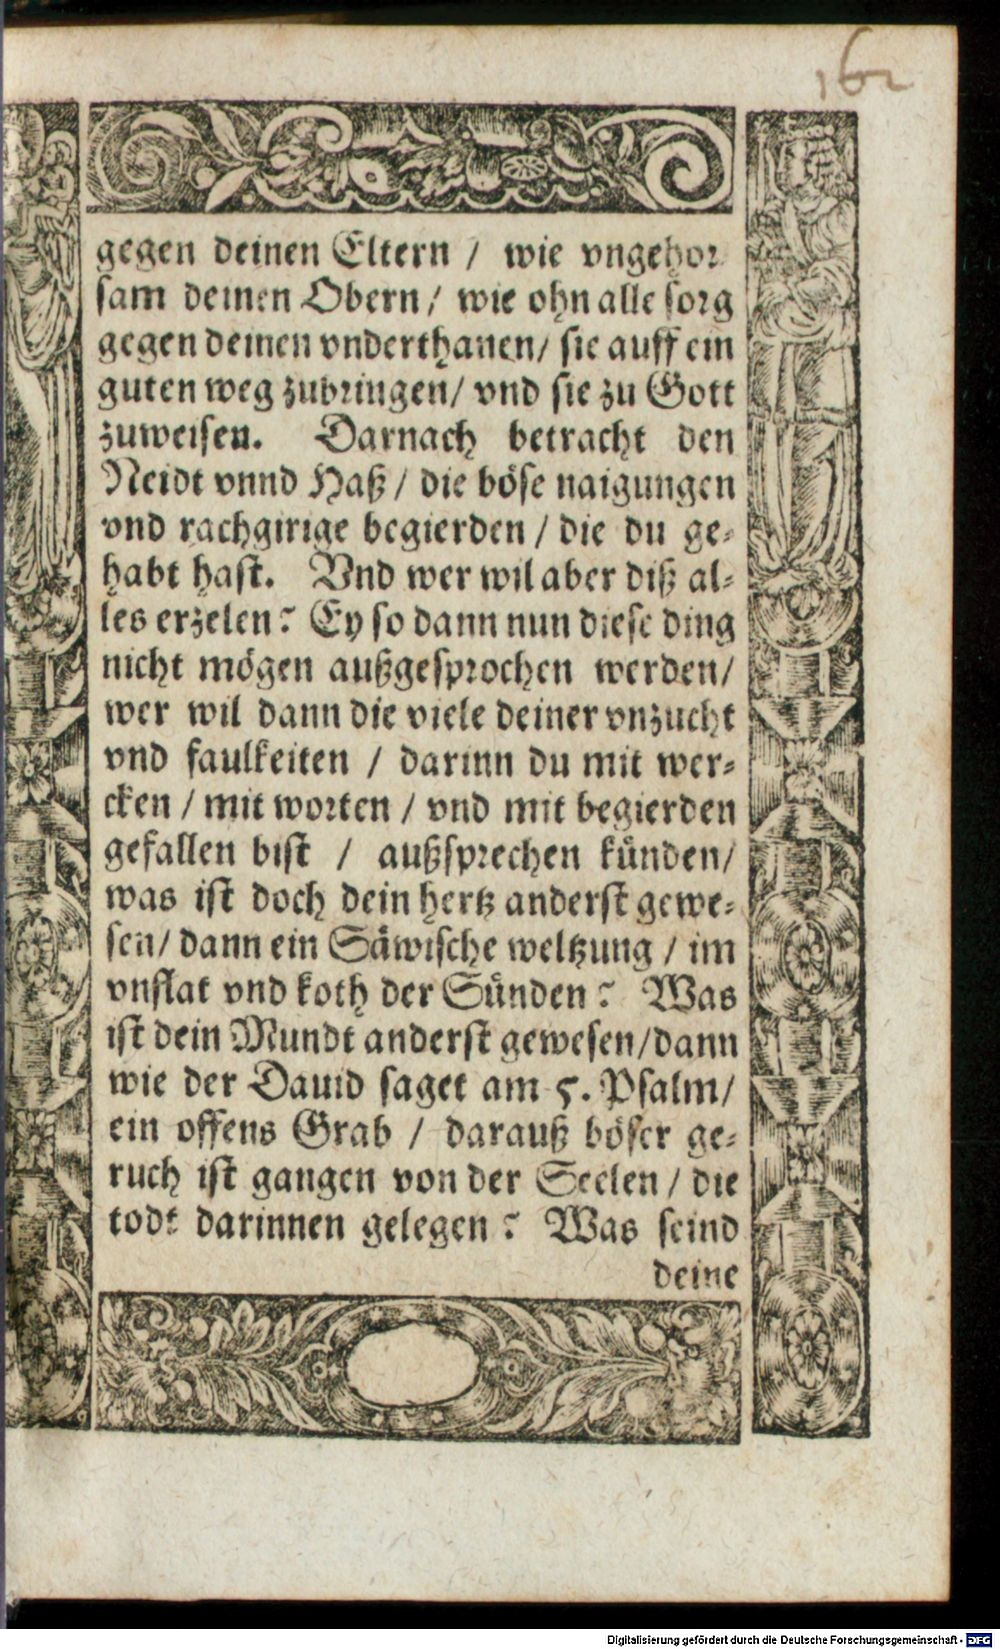 162
gegen deinen Eltern / wie vngehor
sam deinen Obern / wie ohn alle sorg
gegen deinen vnderthanen / sie auff ein
guten weg zubringen / vnd sie zu Gott
zuweisen. Darnach betracht den
Neidt vnnd Haß / die böse naigungen
vnd rachgirige begierden / die du ge-
habt hast. Vnd wer wil aber diß al-
les erzelen? Ey so dann nun diese ding
nicht mögen außgesprochen werden /
wer wil dann die viele deiner vnzucht
vnd faulkeiten / darinn du mit wer-
cken / mit worten / vnd mit begierden
gefallen bist / außsprechen künden /
was ist doch dein hertz anderst gewe-
sen / dann ein Säwische weltzung / im
vnflat vnd koth der Sünden? Was
ist dein Mundt anderst gewesen / dann
wie der Dauid saget am 5. Psalm /
ein offens Grab / darauß böser ge-
ruch ist gangen von der Seelen / die
todt darinnen gelegen? Was seind
deine
Digitalisierung gefördert durch die Deutsche Forschungsgemeinschaft - DFG